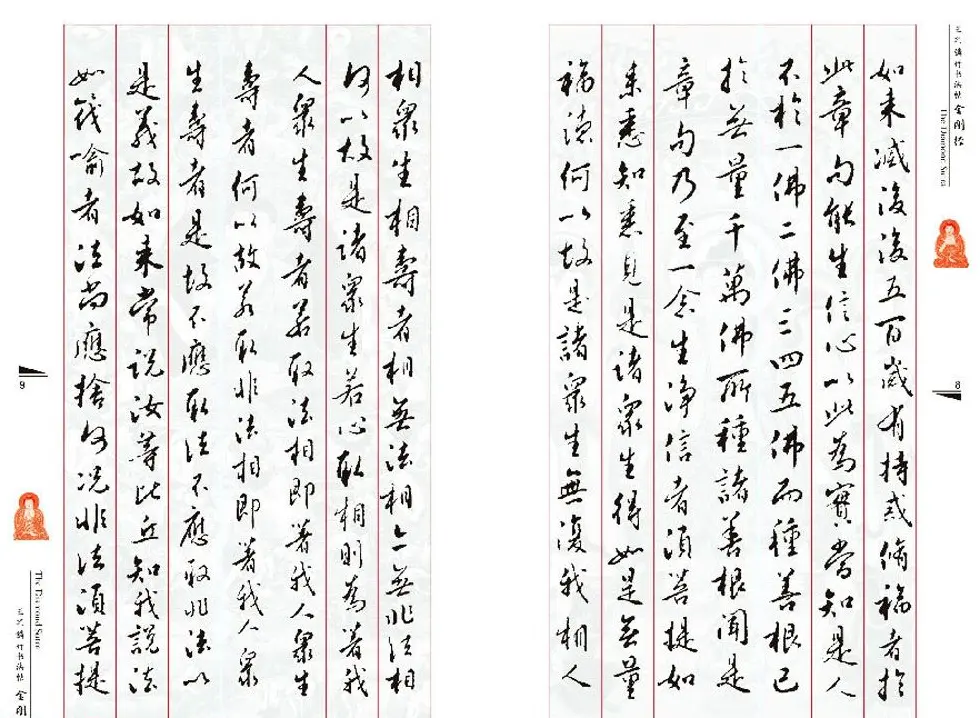 金刚经
The Diamond Sutra
8
如来滅後後五百歲有持戒修福者於
此章句能生信心以此為實當知是人
不於一佛二佛三四五佛而種善根已
於無量千萬佛所種諸善根聞是
章句乃至一念生淨信者須菩提如
来悉知悉見是諸眾生得如是無量
福德何以故是諸眾生無復我相人
相眾生相壽者相無法相亦無非法相
何以故是諸眾生若心取相則為著我
人眾生壽者若取法相即著我人眾生
壽者何以故若取非法相即著我人眾
生壽者是故不應取法不應取非法以
是義故如来常說汝等比丘知我說法
如筏喻者法尚應捨何況非法須菩提
9
The Diamond Sutra
金刚经